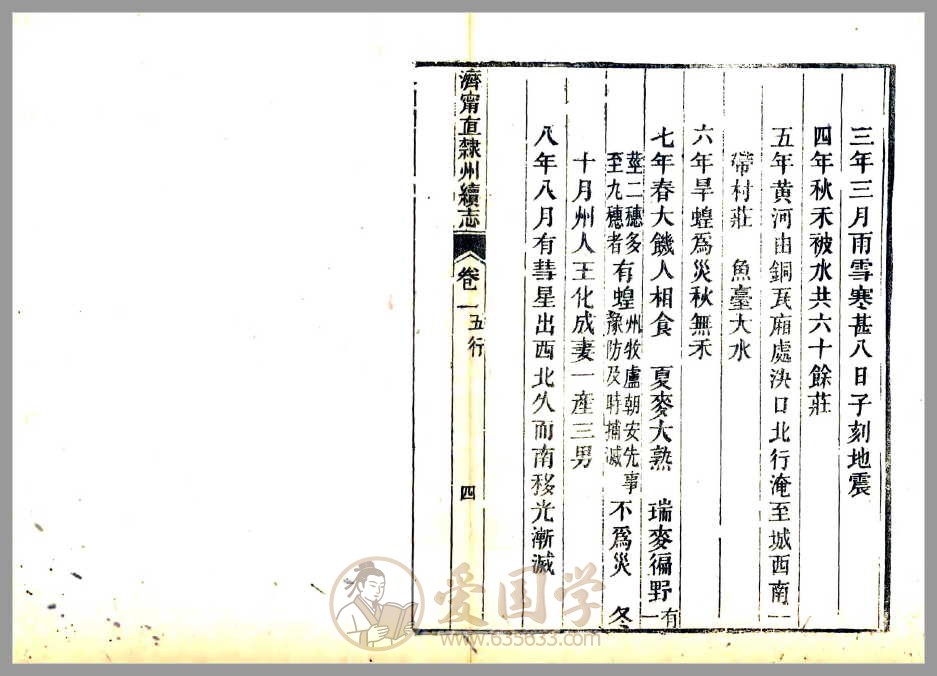 三年三月雨雪寒甚八日子刻地震
四年秋禾被水共六十餘莊
五年黃河由銅瓦廂處決口北行淹至城西南一
帶村莊　魚臺大水
六年旱蝗為災秋無禾
七年春大饑人相食　夏麥大熟　瑞麥徧野有一
莖二穗多至九穗者有蝗州牧盧朝安先事豫防及時捕滅不為災　冬
十月州人王化成妻一產三男
八年八月有彗星出西北久而南移光漸滅
濟甯直隸州續志　卷一　五行　四
爱国学
www.635833.com